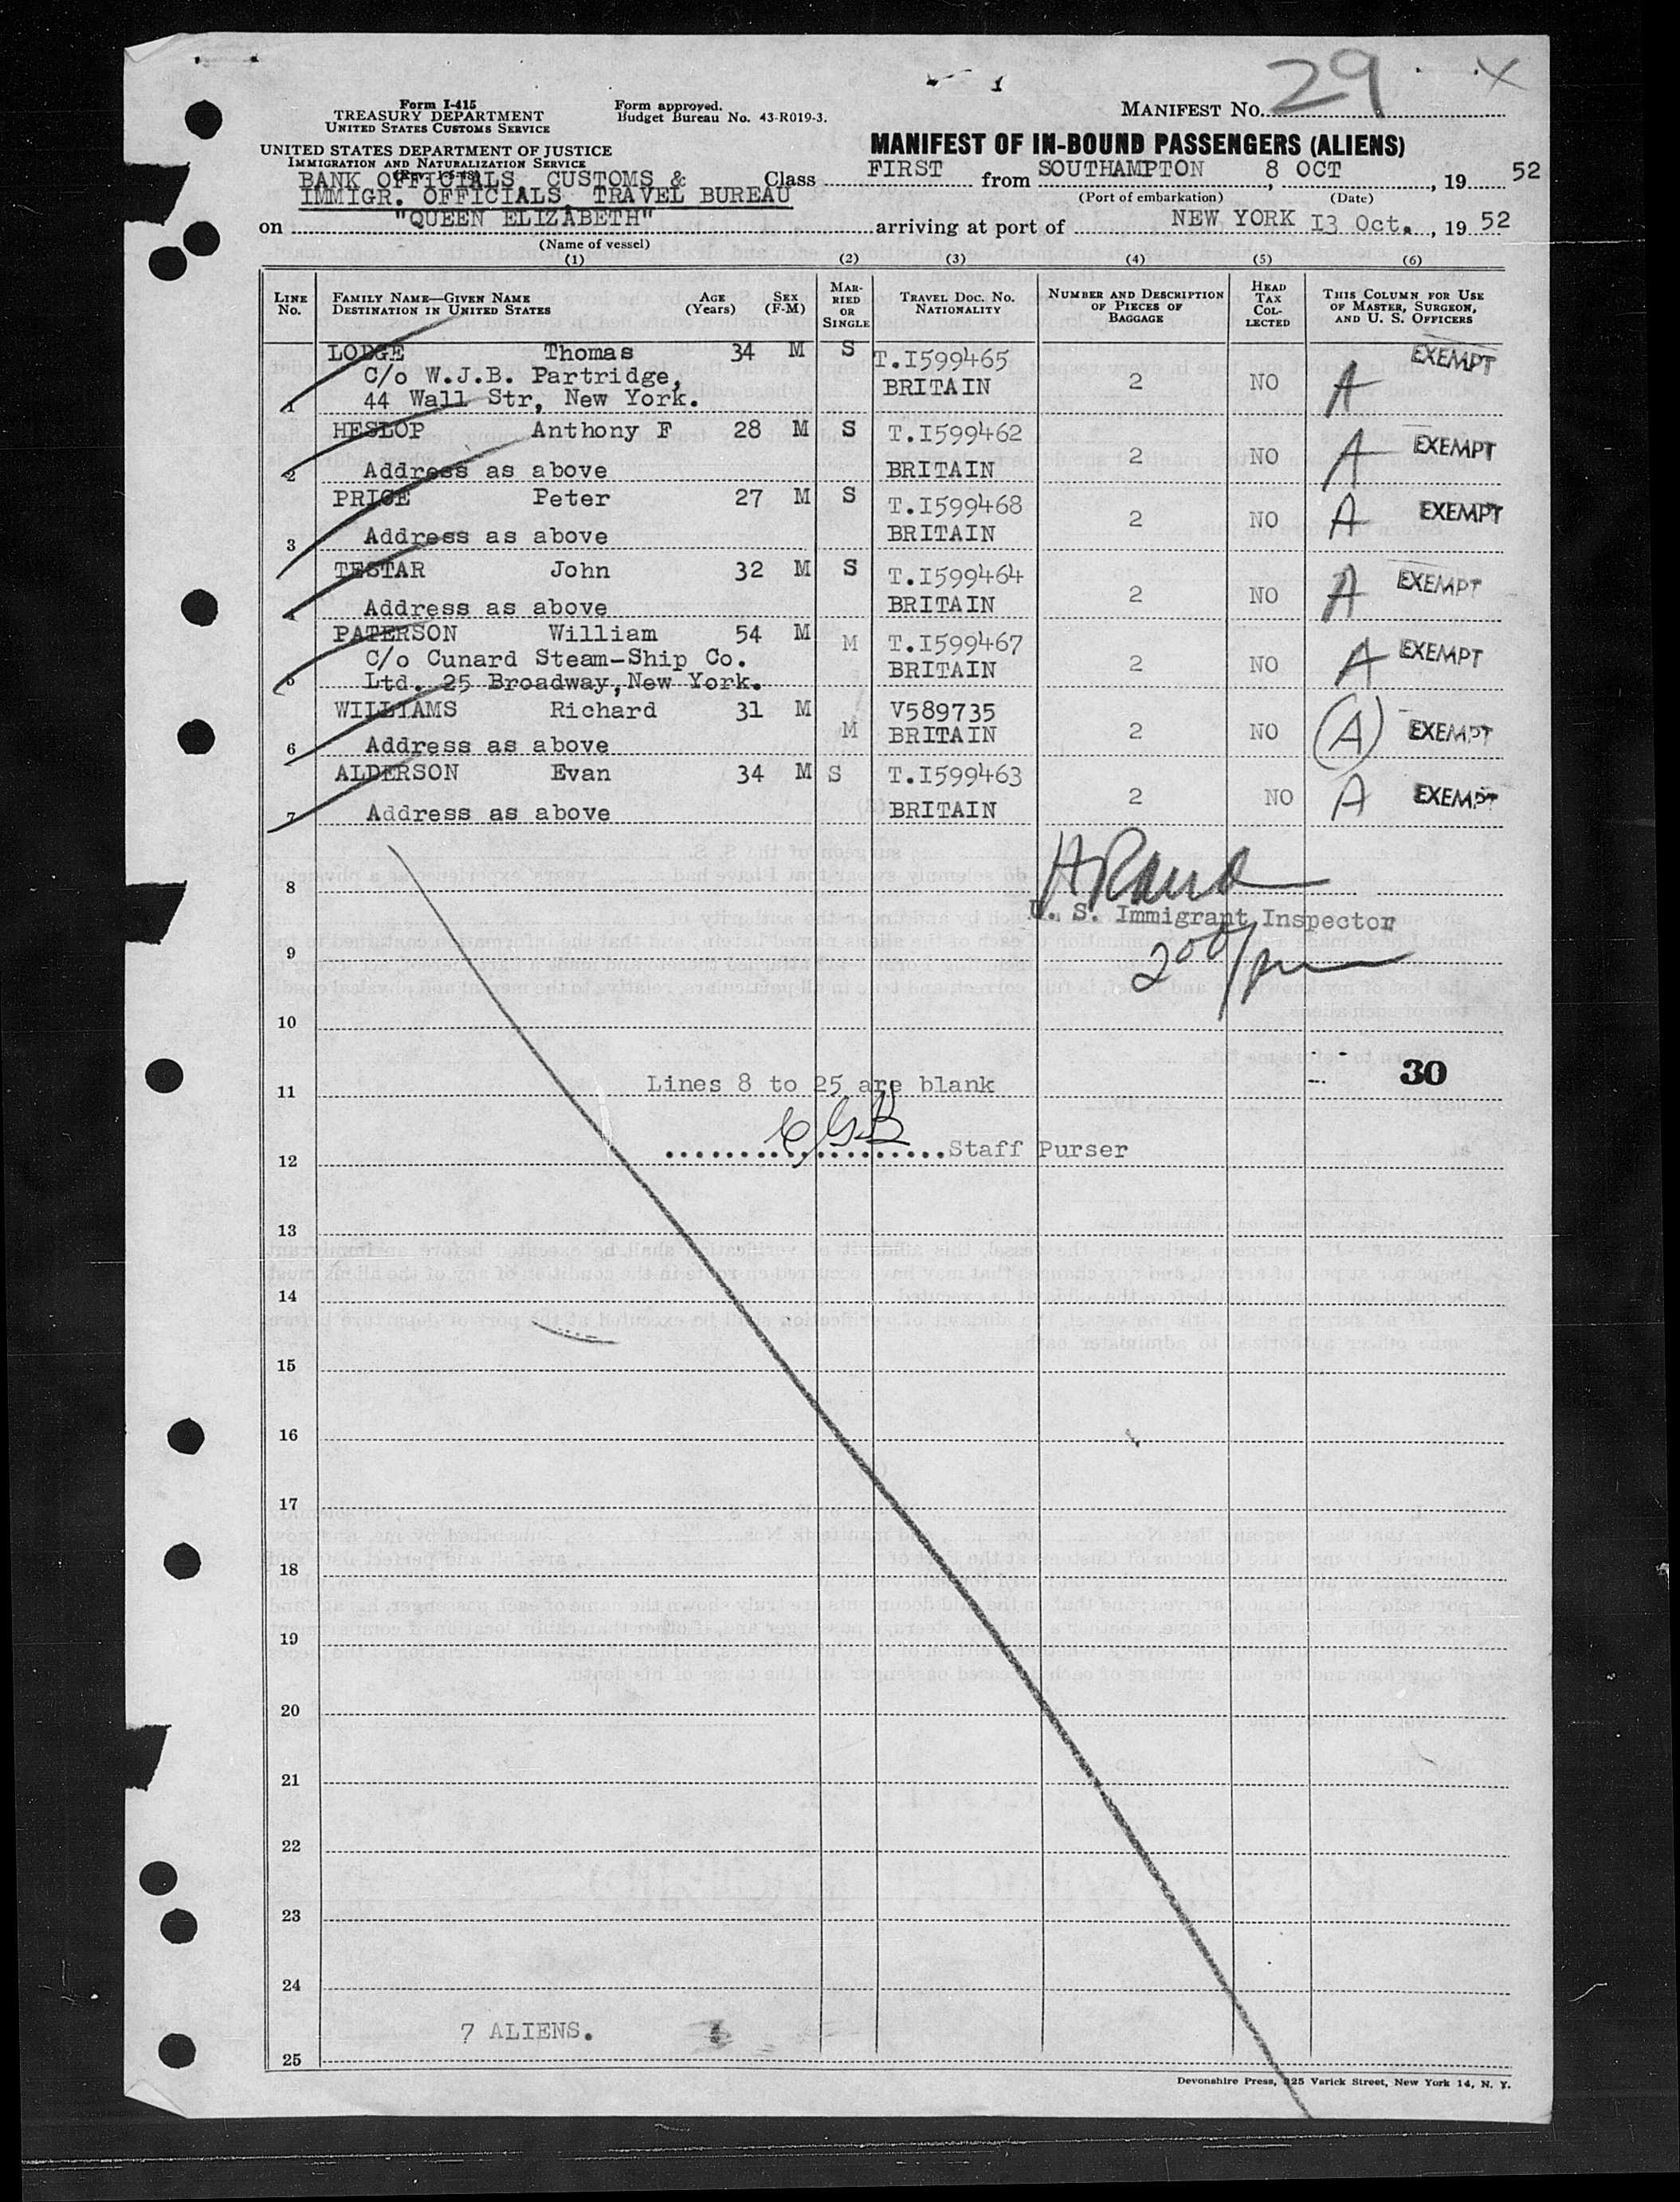 29 X
Form I-415
TREASURY DEPARTMENT
UNITED STATES CUSTOMS SERVICE
Form approved.
Budget Bureau No. 43-R019-3.
MANIFEST No.
UNITED STATES DEPARTMENT OF JUSTICE
IMMIGRATION AND NATURALIZATION SERVICE
MANIFEST OF IN-BOUND PASSENGERS (ALIENS)
BANK OFFICIALS CUSTOMS &
IMMIGR. OFFICIALS TRAVEL BUREAU
Class FIRST from SOUTHAMPTON, 8 OCT, 19 52
(Port of embarkation) (Date)
on "QUEEN ELIZABETH" arriving at port of NEW YORK 13 Oct., 19 52
(Name of vessel)
(1) (2) (3) (4) (5) (6)
LINE No. FAMILY NAME—GIVEN NAME DESTINATION IN UNITED STATES AGE (Years) SEX (F-M) MARRIED OR SINGLE TRAVEL DOC. NO. NATIONALITY NUMBER AND DESCRIPTION OF PIECES OF BAGGAGE HEAD TAX COLLECTED THIS COLUMN FOR USE OF MASTER, SURGEON, AND U. S. OFFICERS
LODGE Thomas 34 M S T.I599465 EXEMPT
C/o W.J.B. Partridge, BRITAIN 2 NO A
1 44 Wall Str, New York.
HESLOP Anthony F 28 M S T.I599462 2 NO A EXEMPT
2 Address as above BRITAIN
PRICE Peter 27 M S T.I599468 2 NO A EXEMPT
3 Address as above BRITAIN
TESTAR John 32 M S T.I599464 2 NO A EXEMPT
4 Address as above BRITAIN
PATERSON William 54 M M T.I599467 EXEMPT
C/o Cunard Steam-Ship Co. BRITAIN 2 NO A
5 Ltd. 25 Broadway, New York.
WILLIAMS Richard 31 M M V589735 2 NO A EXEMPT
6 Address as above BRITAIN
ALDERSON Evan 34 M S T.I599463 2 NO A EXEMPT
7 Address as above BRITAIN
8
U. S. Immigrant Inspector
9
200/pm
10
30
11 Lines 8 to 25 are blank
12 Staff Purser
13
14
15
16
17
18
19
20
21
22
23
24
7 ALIENS.
25
Devonshire Press, 225 Varick Street, New York 14, N. Y.